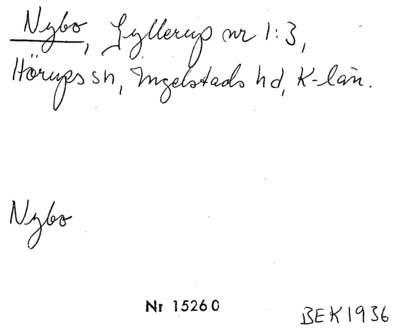 Nybo, Gyllerup nr 1:3,
Hörups sn, Ingelstads hd, K-län.
Nybo
Nr 15260
BEK1936